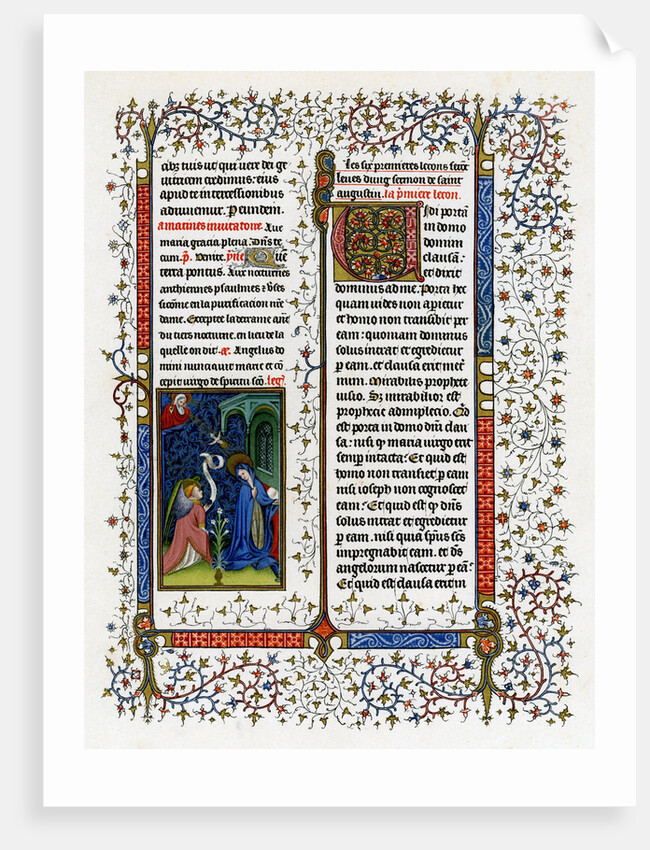 abz tuis ut qui uere dei ge
uitricem credimus: eius
apud te intercessionibus
adiuuemur. Per eundem.
a matines inuitatoire. Aue
maria gracia plena. dñs te
cum. p̄. Venite. ȳne
terra pontus. Aux nocturnes
anthiennes psaulmes &
sicōme en la purificacion nr̄e
dame. Excepte la derraine
du tiers nocturne. en lieu de la
quelle on dit. Angelus do
mini nunciauit marie et cō
cepit uirgo de spiritu sc̄o.
Les six premieres lecons sont
leues dung sermon de saint
augustin. la p̄miere lecon.
Vidi portā
in domo
domini
clausā:
et dixit
dominus ad me. Porta hec
quam uides non aperietur
et homo non transibit per
eam: quoniam dominus
solus intrat et egredietur
p eam. et clausa erit in eter
num. Mirabilis prophete
uisio. Sz mirabilior est
prophecie adimplecio. Qd
est porta in domo dm̄ clau
sa: nisi q̄ maria uirgo erit
semper intacta: Et quid est
homo non transiet p eam
nisi ioseph non cognoscet
eam: Et quid est q̄ dn̄s
solus intrat et egredietur
p eam. nisi quia sp̄us sc̄s
impregnabit eam. et dn̄s
angelorum nascetur p eā:
Et quid est clausa erit in